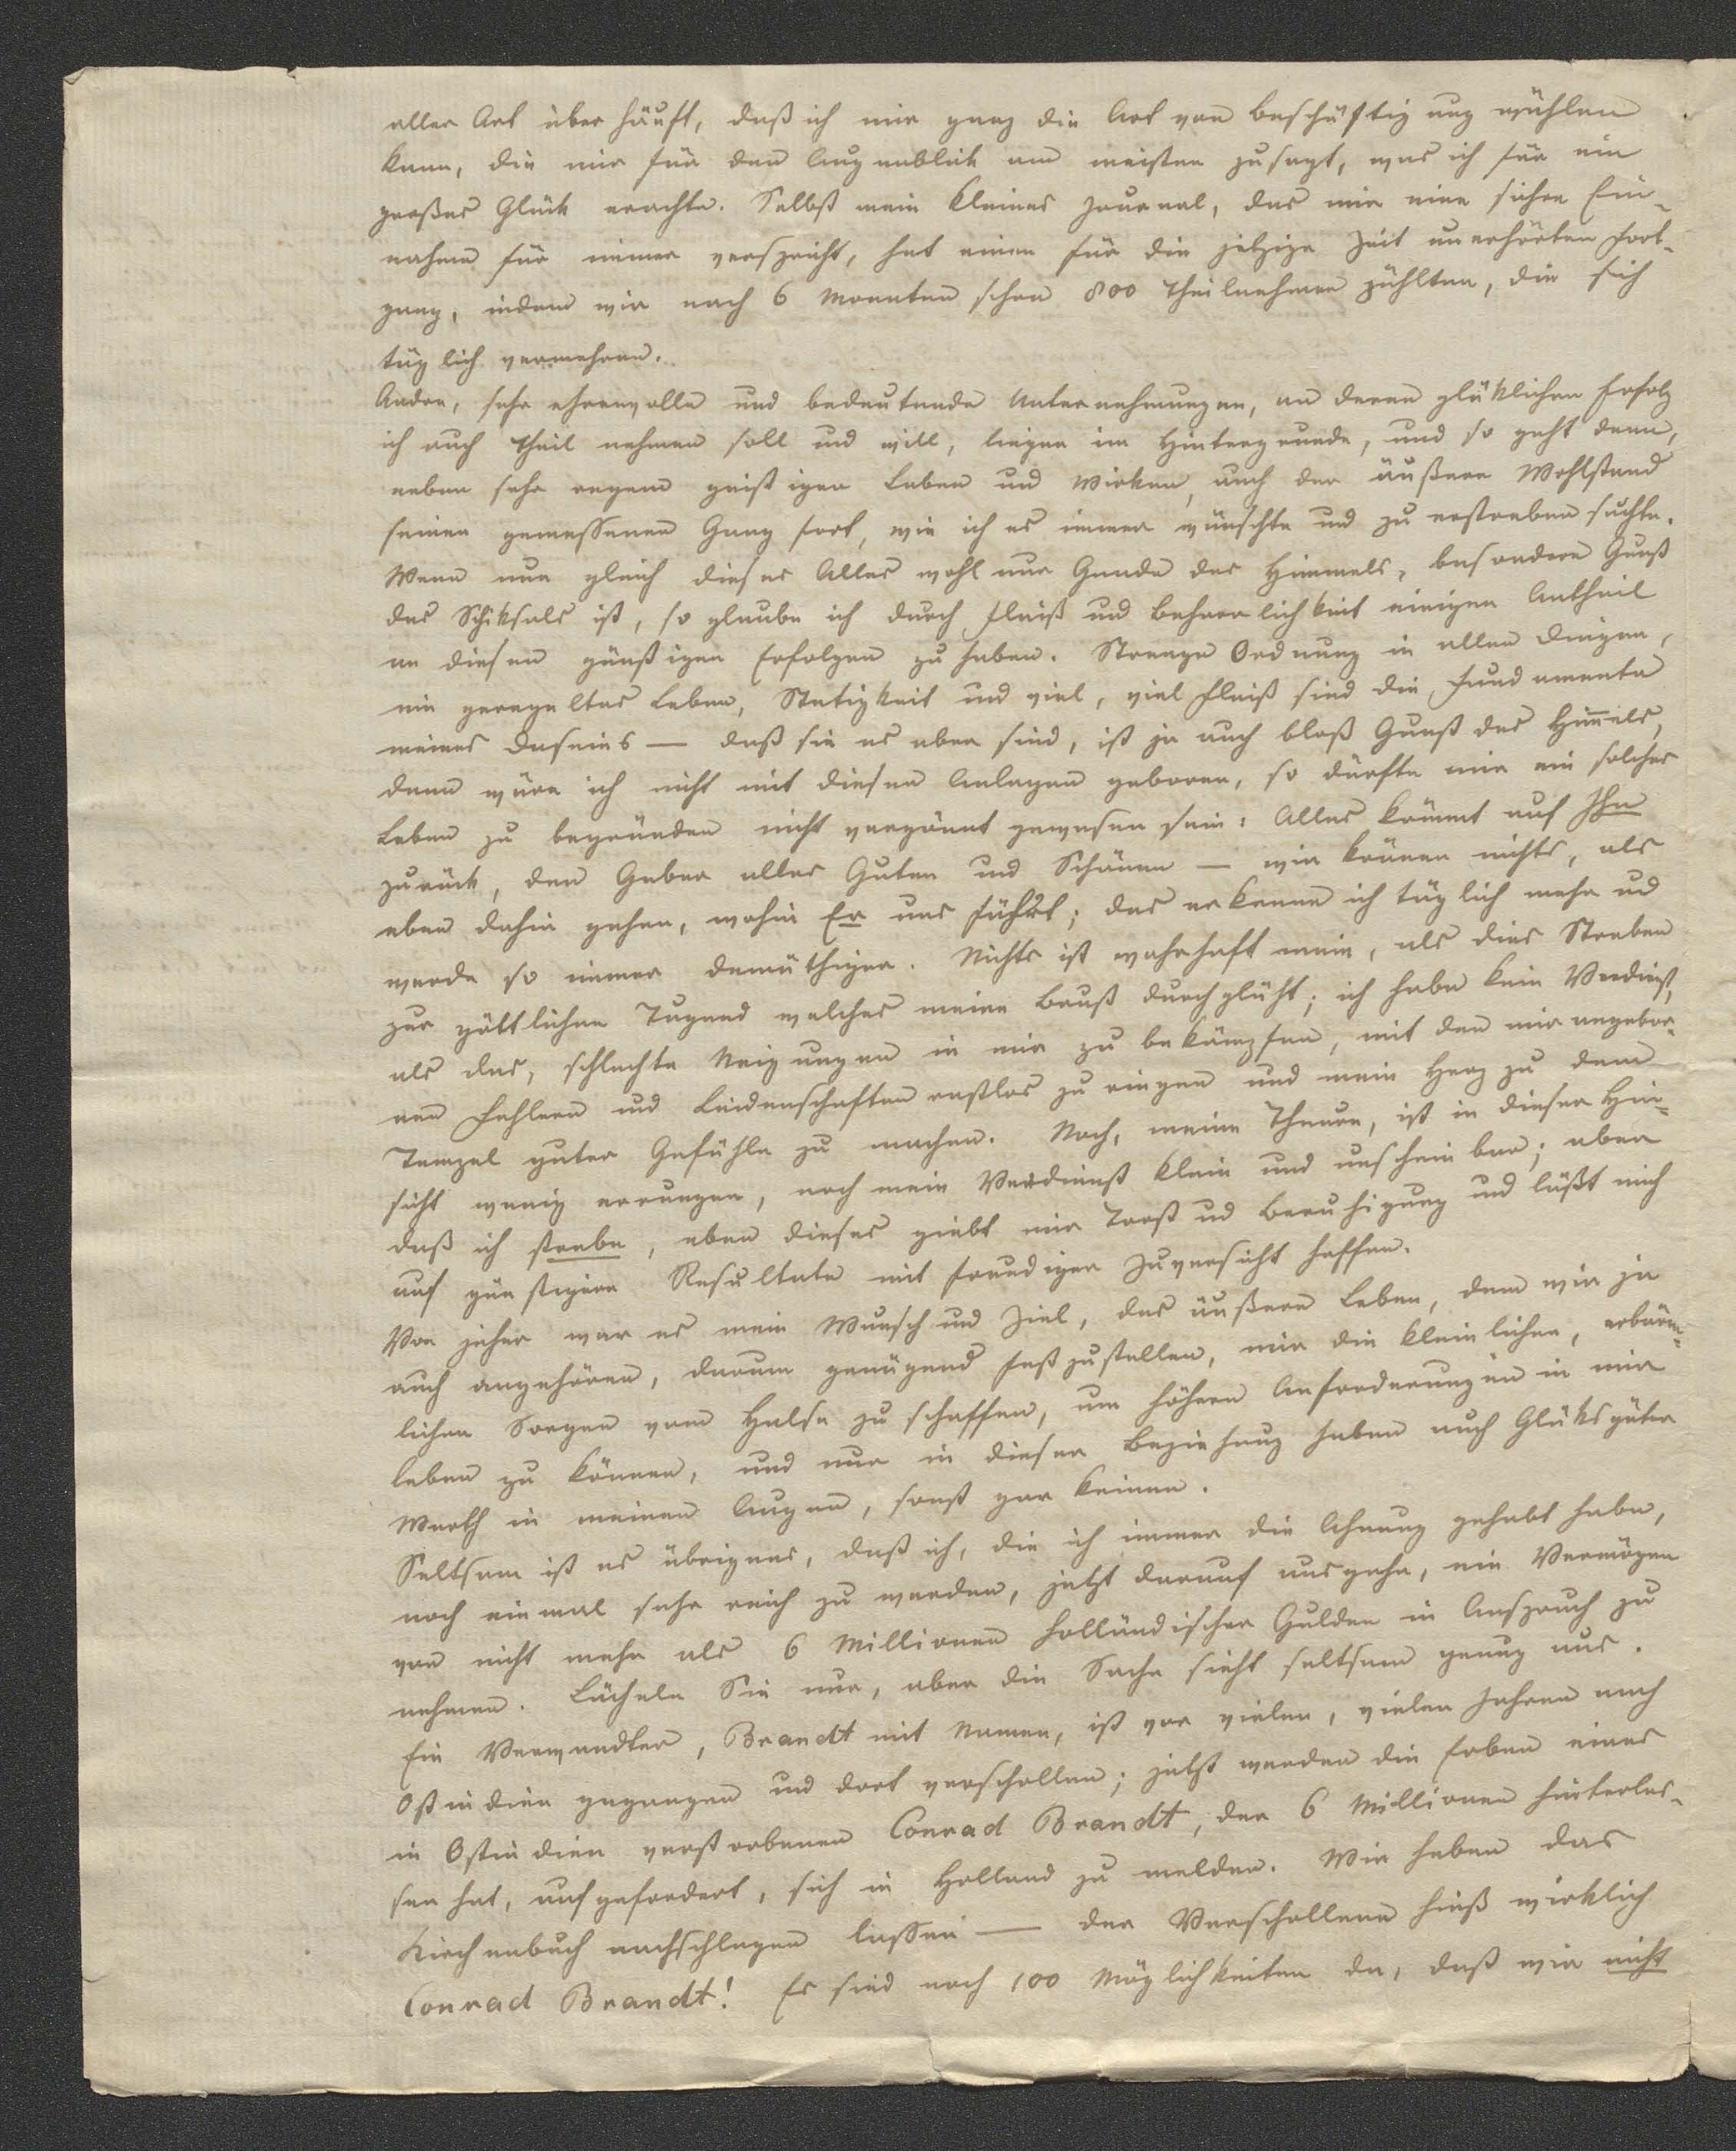 aller Art überhäuft, daß ich mir ganz die Art von Beschäftigung wählen
kann, die mir für den Augenblick am meisten zusagt, was ich für ein
großes Glück erachte. Selbst mein kleines Journal, das mir eine sichre Ein-
nahme für immer verspricht, hat einen für die jetzige Zeit unerhörten Fort-
gang, indem wir nach 6 Monaten schon 800 Theilnehmer zählten, die sich
täglich vermehren.
Andre, sehr ehrenvolle und bedeutende Unternehmungen, an deren glüklichen Erfolg
ich auch Theil nehmen soll und will, liegen im Hintergrunde, und so geht denn,
neben sehr regem geistigen Leben und Wirken, auch der äußere Wohlstand
seinen gemessenen Gang fort, wie ich es immer wünschte und zu erstreben suchte.
Wenn nun gleich dieses Alles wohl nur Gnade des Himmels, besondere Gunst
des Schiksals ist, so glaube ich durch Fleiß und Beharrlichkeit einigen Antheil
an diesen günstigen Erfolgen zu haben. Strenge Ordnung in allen Dingen,
ein geregeltes Leben, Stetigkeit und viel, viel Fleiß sind die Fundamente
meines Daseins — daß sie es aber sind, ist ja auch bloß Gunst des Himmels,
denn wäre ich nicht mit diesen Anlagen geboren, so dürfte mir ein solches
Leben zu begründen nicht vergönnt gewesen sein: Alles kömmt auf Ihn
zurück, den Geber alles Guten und Schönen — wir können nichts, als
eben dahin gehen, wohin Er uns führt; das erkenne ich täglich mehr und
werde so immer demüthiger. Nichts ist wahrhaft mein, als dies Streben
zur göttlichen Tugend welches meine Brust durchglüht; ich habe kein Verdienst,
als das, schlechte Neigungen in mir zu bekämpfen, mit den mir angebor-
nen Fehlern und Leidenschaften rastlos zu ringen und mein Herz zu dem
Tempel guter Gefühle zu machen. Noch, meine Theure, ist in dieser Hin-
sicht wenig errungen, noch mein Verdienst klein und unscheinbar; aber
daß ich strebe, eben dieses giebt mir Trost und Beruhigung und läßt mich
auf günstigere Resultate mit freudiger Zuversicht hoffen.
Von jeher war es mein Wunsch und Ziel, das äußere Leben, dem wir ja
auch angehören, darum genügend festzustellen, mir die kleinlichen, erbärm-
lichen Sorgen vom Halse zu schaffen, um höhern Anforderungen in mir
leben zu können, und nur in dieser Beziehung haben auch Glüksgüter
Werth in meinen Augen, sonst gar keinen.
Seltsam ist es übrigens, daß ich, die ich immer die Ahnung gehabt habe,
noch einmal sehr reich zu werden, jetzt darauf ausgehe, ein Vermögen
von nicht mehr als 6 Millionen holländischer Gulden in Anspruch zu
nehmen. Lächeln Sie nur, aber die Sache sieht seltsam genug aus.
Ein Verwandter, Brandt mit Namen, ist vor vielen, vielen Jahren nach
Ostindien gegangen und dort verschollen; jetzt werden die Erben eines
in Ostindien verstorbenen Conrad Brandt, der 6 Millionen hinterlas-
sen hat, aufgefordert, sich in Holland zu melden. Wir haben das
Kirchenbuch nachschlagen lassen — der Verschollene hieß wirklich
Conrad Brandt! Es sind noch 100 Möglichkeiten da, daß wir nicht